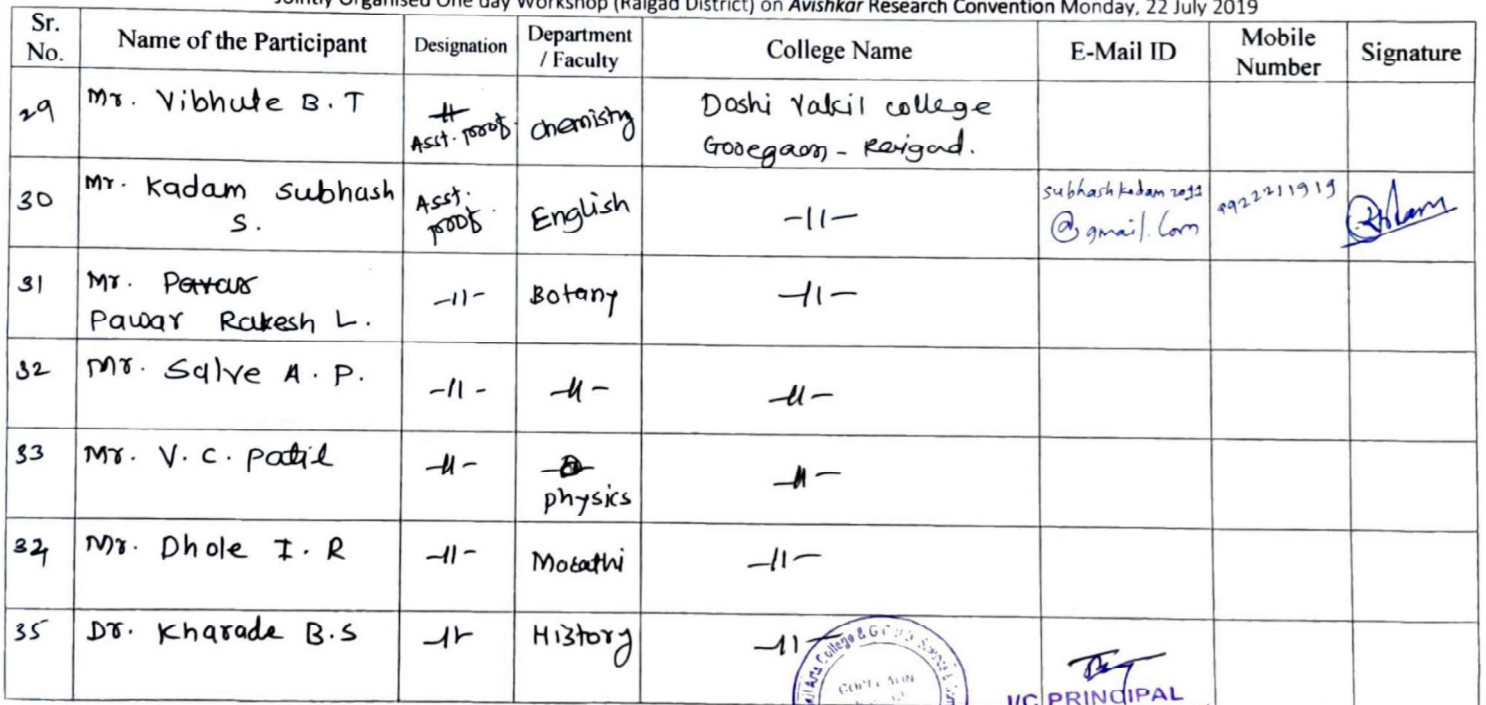 Jointly Organised One day Workshop (Raigad District) on Avishkar Research Convention Monday, 22 July 2019
Sr. No. Name of the Participant Designation Department / Faculty College Name E-Mail ID Mobile Number Signature
29 Mr. Vibhute B. T Asst. prof. chemistry Doshi Vakil college
Goregaon - Raigad.
30 Mr. Kadam Subhash S. Asst. prof English -11- subhashkadam2011
@gmail.com 9922211919
31 Mr. Pawar Rakesh L. -11- Botany -11-
32 Mr. Salve A. P. -11- -11- -11-
33 Mr. V. C. patil -11- physics -11-
34 Mr. Dhole I. R -11- Marathi -11-
35 Dr. Kharade B.S -11- History -11-
I/C PRINCIPAL